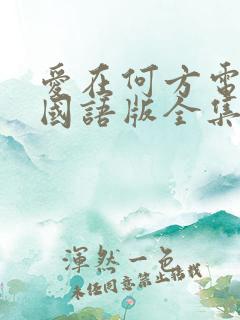 愛在何方電
國語版全集
渾然一色
未经同意禁止转载